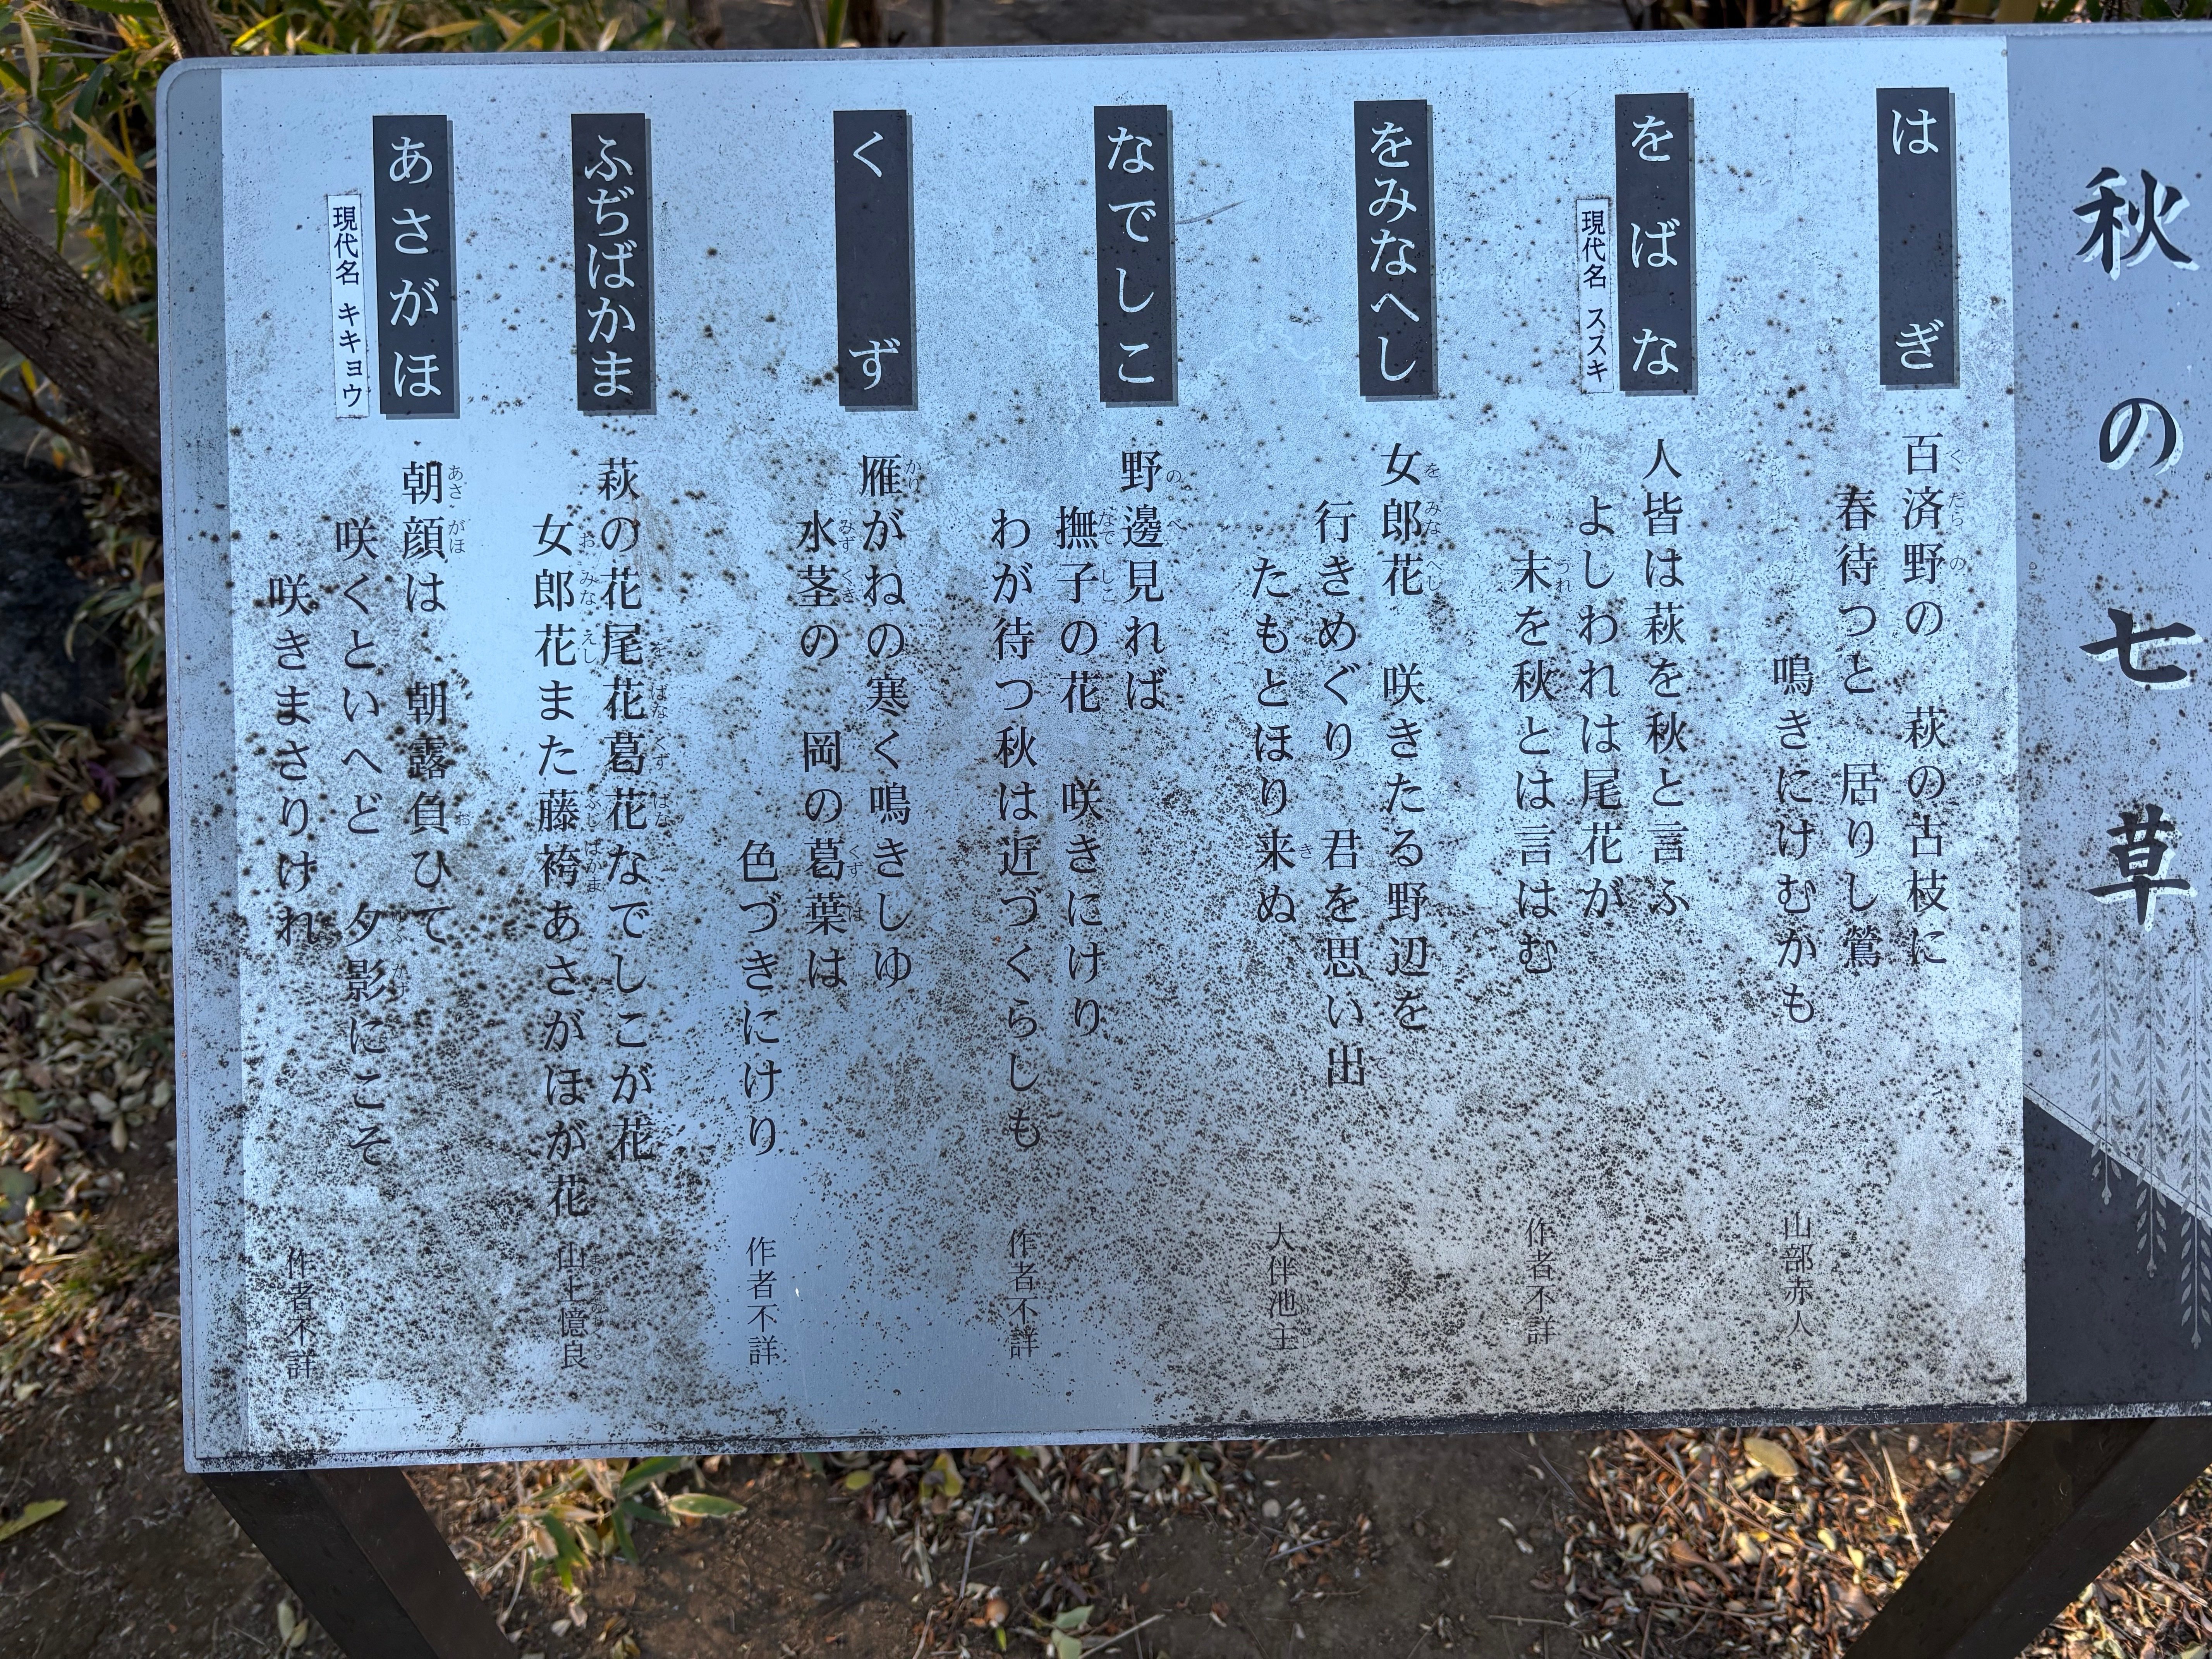 秋の七草
はぎ
百済野の　萩の古枝に
春待つと　居りし鶯
鳴きにけむかも
山部赤人
をばな
現代名　ススキ
人皆は萩を秋と言ふ
よしわれは尾花が
末を秋とは言はむ
作者不詳
をみなへし
女郎花　咲きたる野辺を
行きめぐり　君を思い出
たもとほり来ぬ
大伴池主
なでしこ
野邊見れば
撫子の花　咲きにけり
わが待つ秋は近づくらしも
作者不詳
くず
雁がねの寒く鳴きしゆ
水茎の　岡の葛葉は
色づきにけり
作者不詳
ふぢばかま
萩の花尾花葛花なでしこが花
女郎花また藤袴あさがほが花
山上憶良
あさがほ
現代名　キキョウ
朝顔は　朝露負ひて
咲くといへど　夕影にこそ
咲きまさりけれ
作者不詳